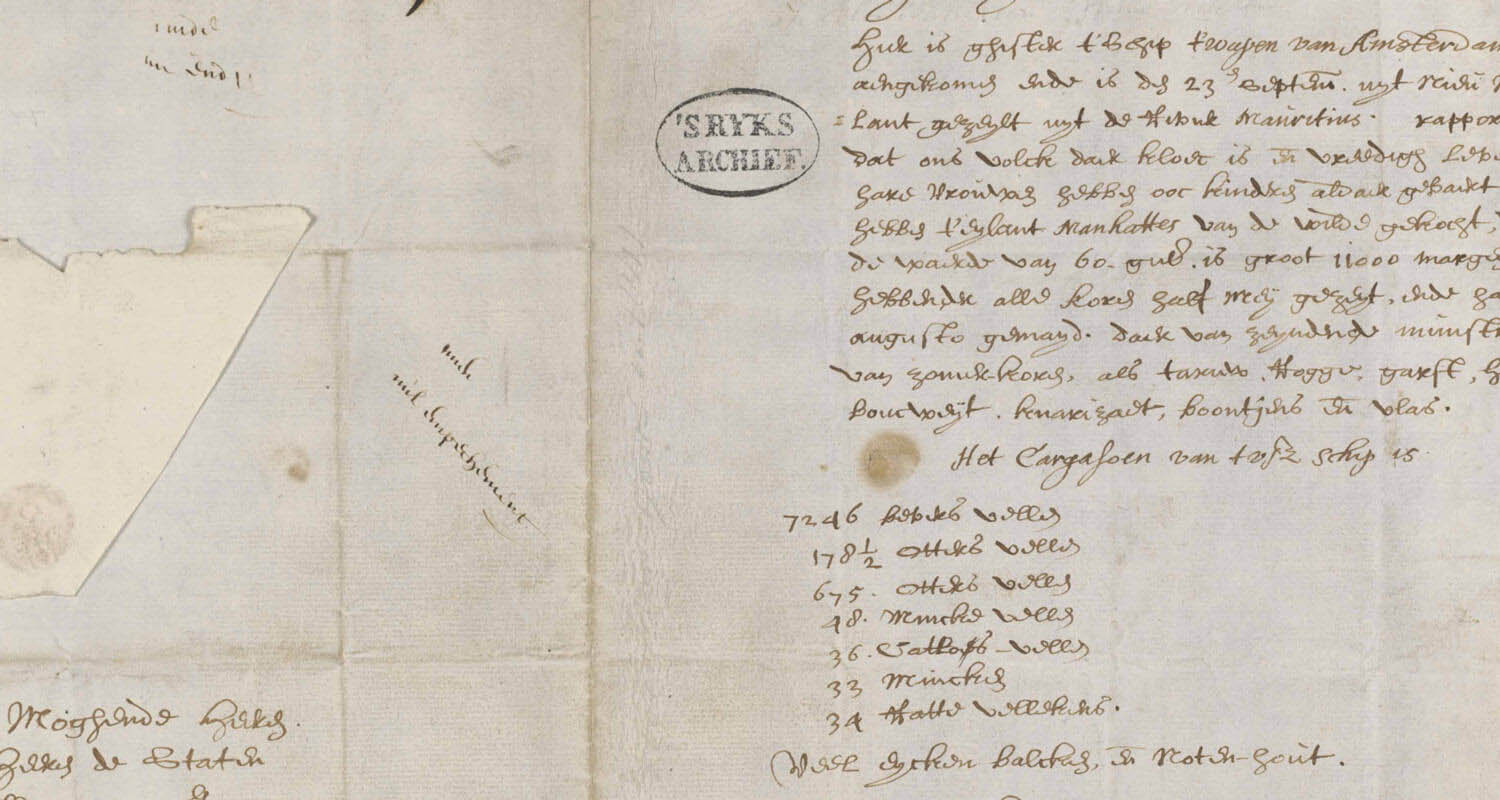 'SRYKS
ARCHIEF.
Hier is ghister t'Schip t'wapen van Amsterdam
aengekomen ende is den 23en Septem. uyt Nieu N
=lant gezeylt uyt de Rivier Mauritius. rappor
dat ons volck daer kloec is en vreedigh leve
hare Vrouwen hebben ooc kinderen aldaer gebaert
hebben t'eylant Manhattes van de wilde gekocht,
de waerde van 60. gul. is groot 11000 margen
hebbende alle koren half Mey gezeyt, ende ha
augusto gemayd. daer van zeyndende munst
van zomer-koren, als taruw, Rogge, garst, h
boucweyt, knarizaet, boontjens en vlas.
Het Cargasoen van t'vsz schip is
7246 bevers vellen
178½ Otters vellen
675. Otters vellen
48. Mincke vellen
36. Catloes-vellen
33 Mincken
34 Ratte vellekens.
Veel eycken balcken, en Noten-hout.
Moghende Heeren.
Heeren de Staten